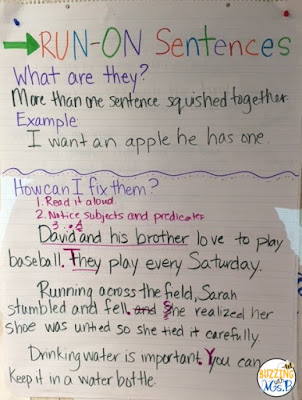 RUN-ON Sentences
What are they?
More than one sentence squished together.
Example
I want an apple he has one.
How can I fix them?
1. Read it aloud.
2. Notice subjects and predicates
3.
David and his brother love to play
baseball. They play every Saturday.
Running across the field, Sarah
stumbled and fell. and She realized her
shoe was untied so she tied it carefully.
Drinking water is important. You can
keep it in a water bottle.
BUZZING
WITH
Ms. B